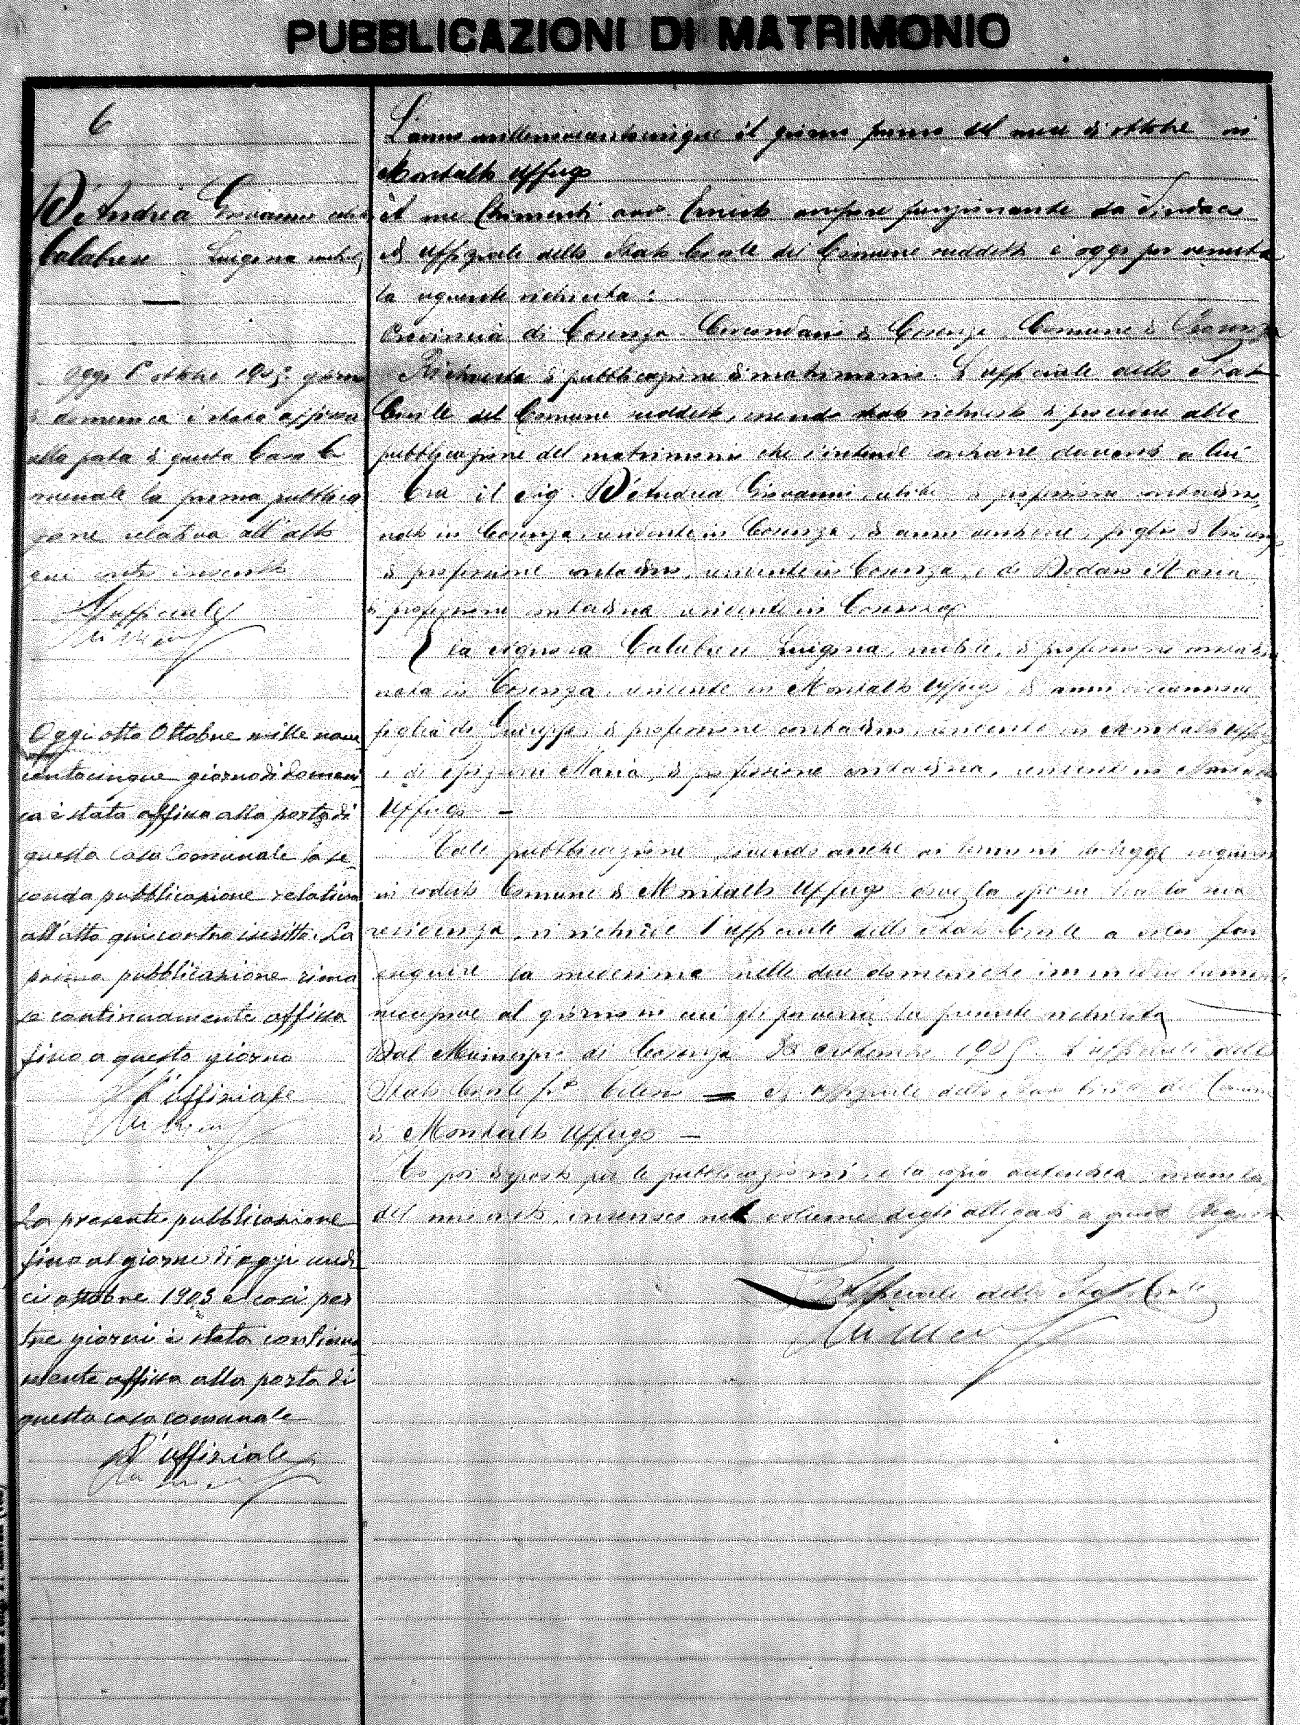 PUBBLICAZIONI DI MATRIMONIO
6
D'Andrea Giovanni celibe
Calabrese Luigina nubile
Oggi 1º ottobre 1905 giorno
di domenica è stata affissa
alla porta di questa Casa Co
munale la prima pubblica
zione relativa all'atto
qui contro inserito
L'ufficiale
Oggi otto Ottobre mille nove
centocinque giorno di domeni
ca è stata affissa alla porta di
questa casa Comunale la se
conda pubblicazione relativa
all'atto qui contro iscritto. La
prima pubblicazione rima
se continuamente affissa
fino a questo giorno
L'uffiziale
La presente pubblicazione
fino al giorno di oggi undi
ci ottobre 1905 e così per
tre giorni è stata continua
mente affissa alla porta di
questa casa comunale
L'uffiziale
L'anno millenovecentocinque il giorno primo del mese di ottobre in
Montalto Uffugo
A me Chimenti avv. Ernesto assessore funzionante da Sindaco
ed Uffiziale dello Stato Civile del Comune suddetto è oggi pervenuta
la seguente richiesta:
Provincia di Cosenza Circondario di Cosenza Comune di Cosenza
Richiesta di pubblicazione di matrimonio. L'ufficiale dello Stato
Civile del Comune suddetto, essendo stato richiesto di procedere alla
pubblicazione del matrimonio che s'intende contrarre davanti a lui
Tra il sig. D'Andrea Giovanni, celibe di professione contadino
nato in Cosenza, residente in Cosenza, di anni ventitre, figlio di
di professione contadino, residente in Cosenza, e di Maria
di professione contadina residente in Cosenza
E la signora Calabrese Luigina, nubile, di professione contadina
nata in Cosenza, residente in Montalto Uffugo, di anni diciannove
figlia di Giuseppe, di professione contadino, residente in Montalto Uffugo
e di Maria, di professione contadina, residente in Montalto
Uffugo —
Tale pubblicazione dovendo anche ai termini di legge eseguirsi
in codesto Comune di Montalto Uffugo ove la sposa ha la sua
residenza, si richiede l'ufficiale dello Stato Civile a voler far
eseguire la medesima nelle due domeniche immediatamente
successive al giorno in cui gli perverrà la presente richiesta
Dal Municipio di Cosenza settembre 1905. L'ufficiale dello
Stato Civile — ufficiale dello Stato Civile del Comune
di Montalto Uffugo —
Ho poi disposto per le pubblicazioni, e la copia autentica, munita
del mio visto, inserisco nel volume degli allegati a questo Registro
L'Ufficiale dello Stato Civile